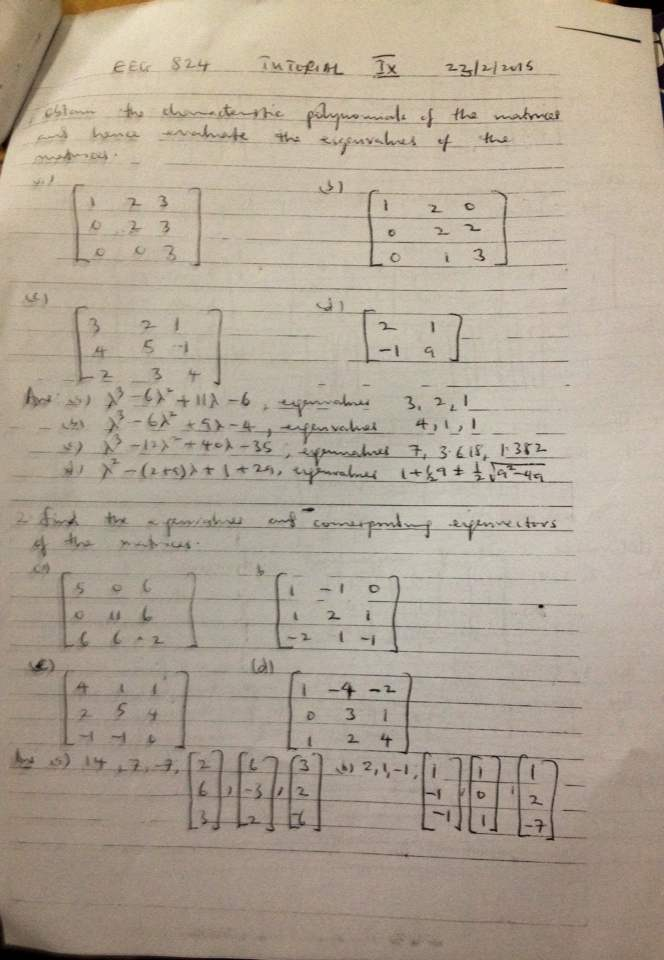 EEG 824 TUTORIAL IX 23/2/2015
obtain the characteristic polynomials of the matrices
and hence evaluate the eigenvalues of the
matrices.
a) b)
1 2 3 1 2 0
0 2 3 0 2 2
0 0 3 0 1 3
c) d)
3 2 1 2 1
4 5 -1 -1 a
2 3 4
Ans: a) λ³ - 6λ² + 11λ - 6, eigenvalues 3, 2, 1
b) λ³ - 6λ² + 9λ - 4, eigenvalues 4, 1, 1
c) λ³ - 12λ² + 40λ - 35, eigenvalues 7, 3.618, 1.382
d) λ² - (2+a)λ + 1 + 2a, eigenvalues 1 + ½a ± ½√a²-4a
2. find the eigenvalues and corresponding eigenvectors
of the matrices.
a) b
5 0 6 1 -1 0
0 11 6 1 2 1
6 6 -2 -2 1 -1
(c) (d)
4 1 1 1 -4 -2
2 5 4 0 3 1
-1 -1 0 1 2 4
Ans a) 14, 7, -7, [2 6 3], [6 -3 2], [3 2 -6] b) 2, 1, -1, [1 -1 -1], [1 0 1], [1 2 -7]